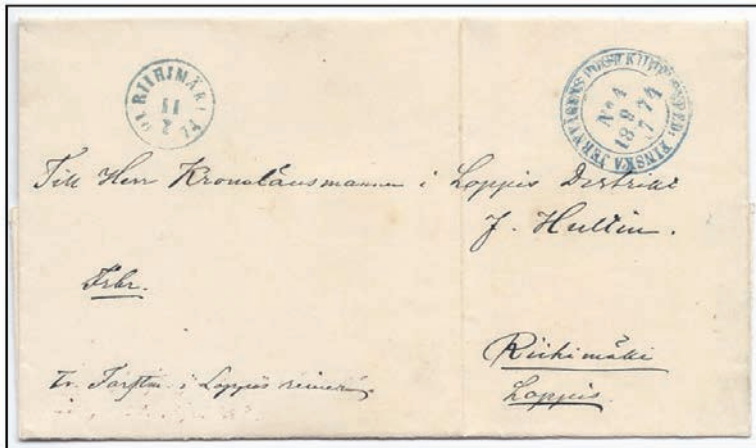 RIIHIMÄKI
11
2
74
FINSKA JERNVÄGENS POSTKUPÉEXPED:
No 4
18 9/7 74
Till Herr Kronolänsmannen i Loppis Distrikt
J. Hultin.
Frbr.
Riihimäki
Loppis.
i Loppis